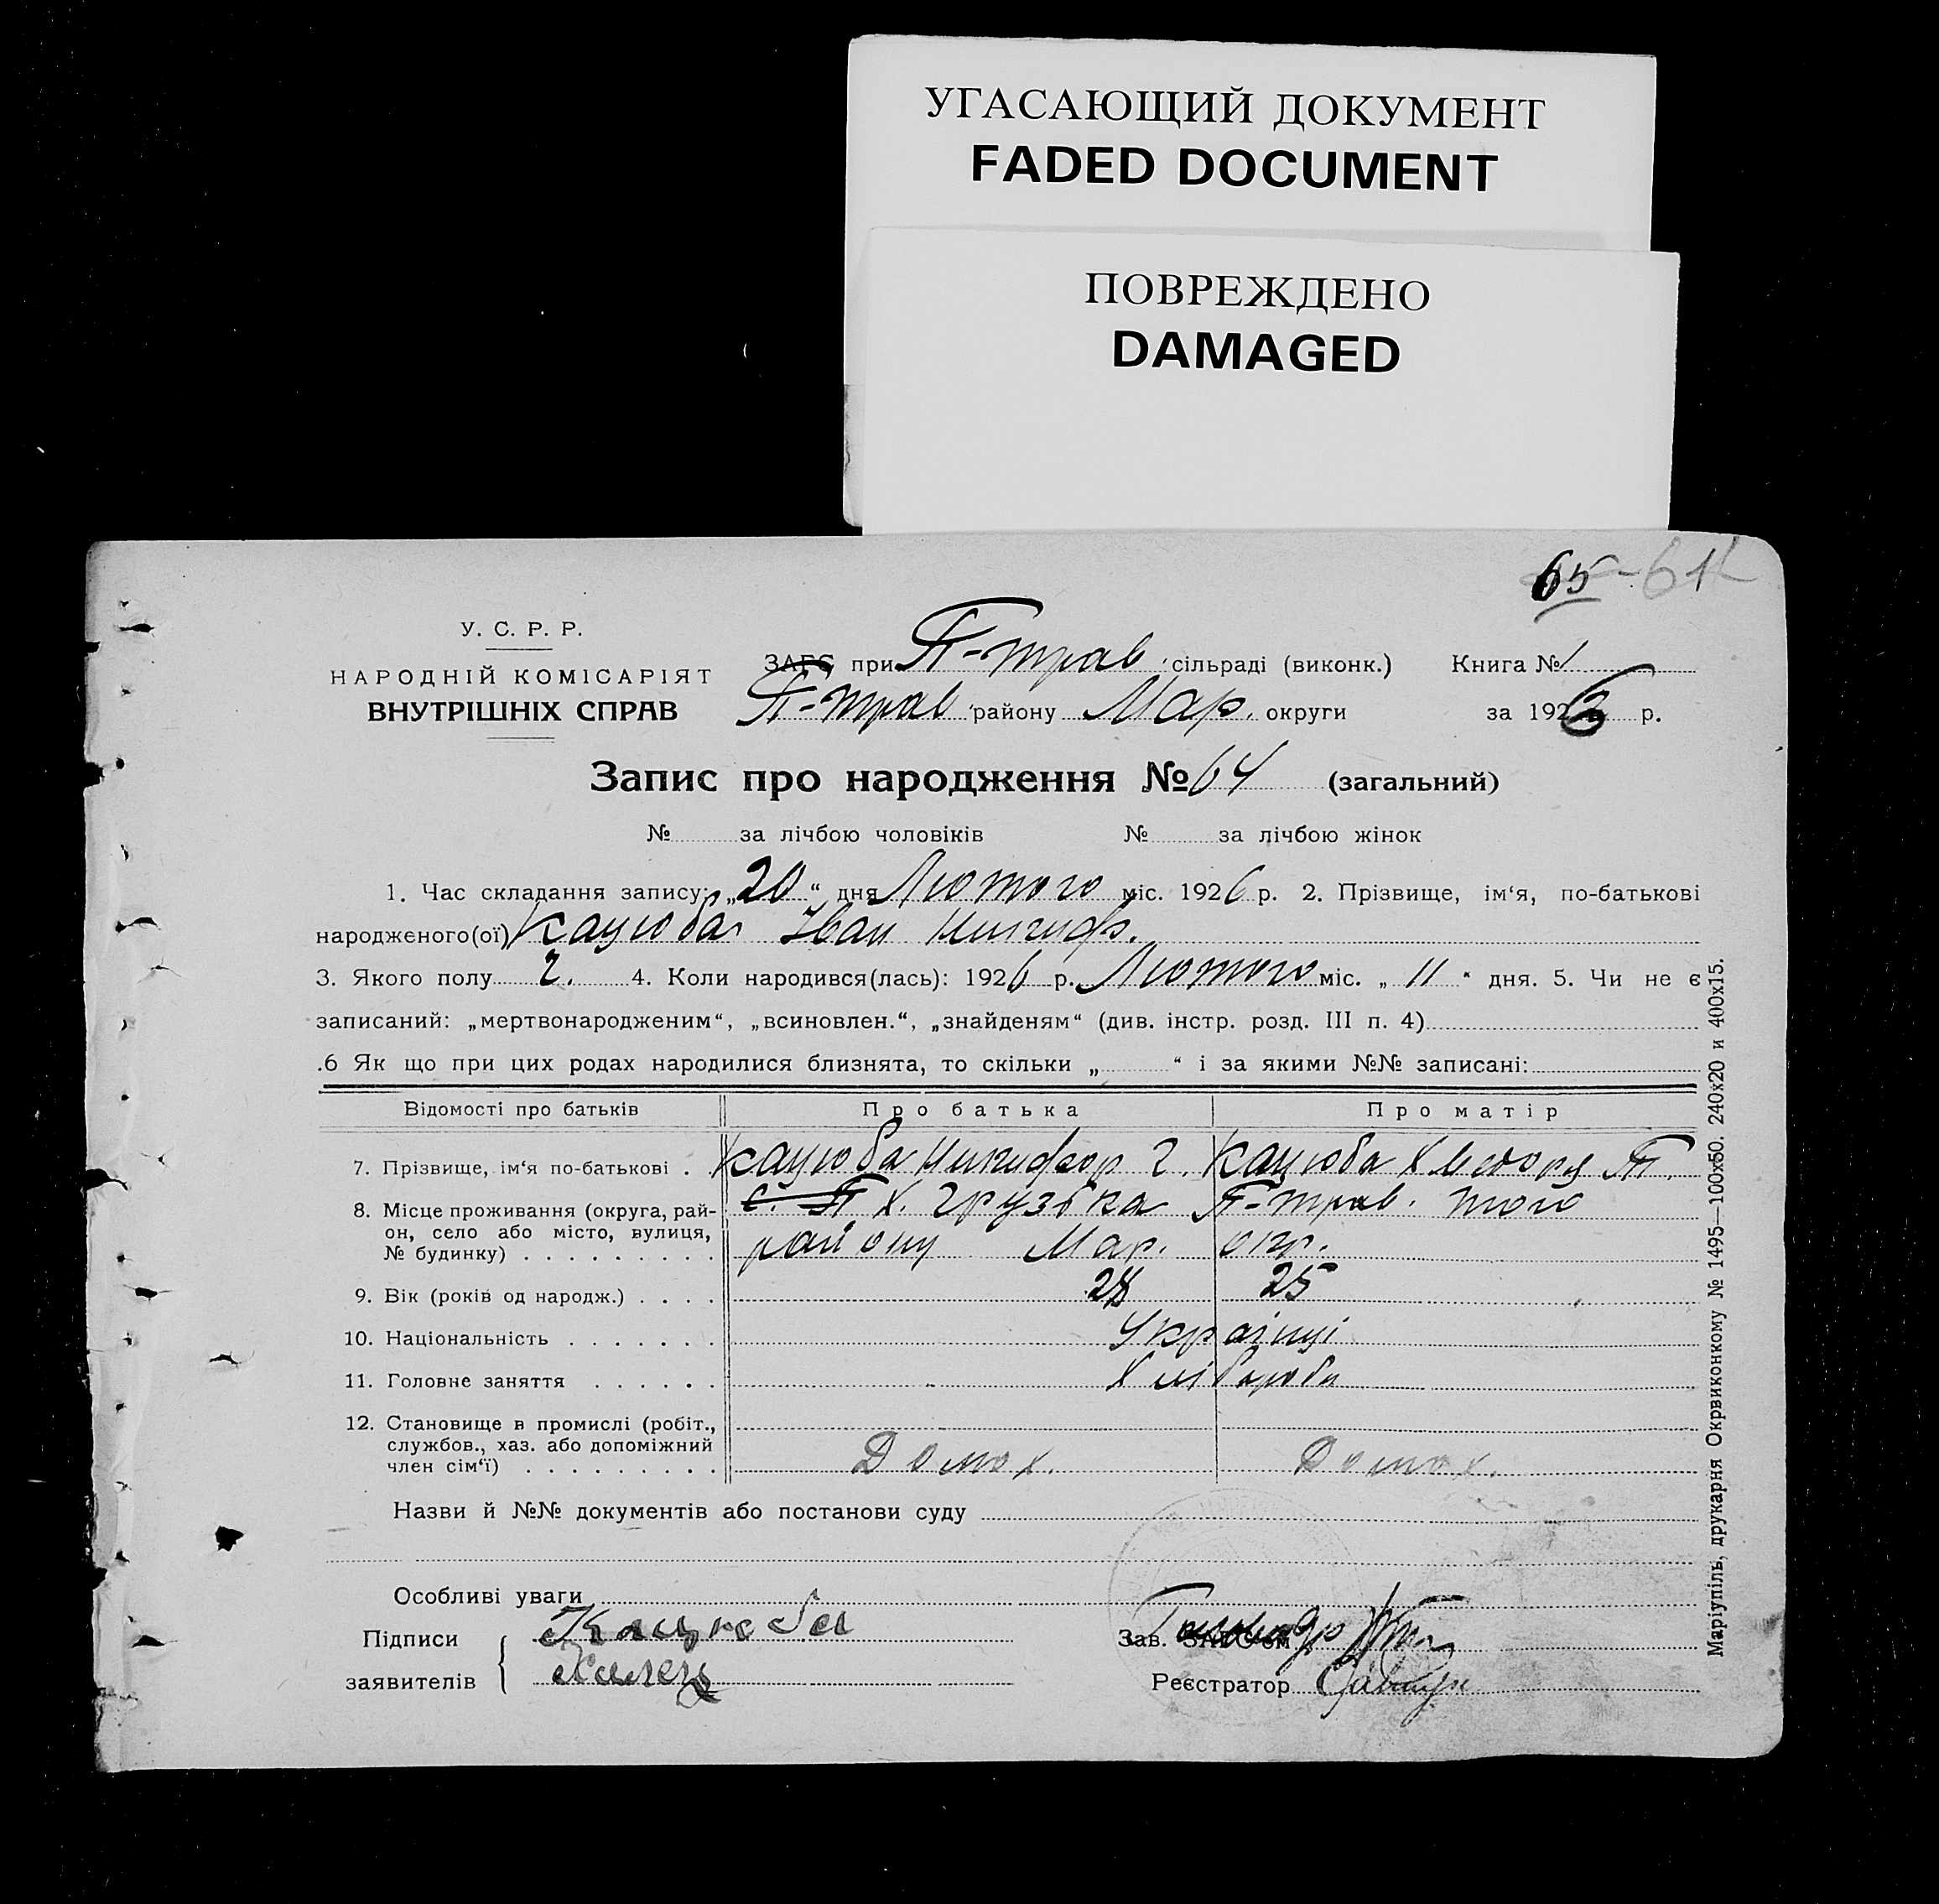 УГАСАЮЩИЙ ДОКУМЕНТ
FADED DOCUMENT
ПОВРЕЖДЕНО
DAMAGED
65 - 61
У. С. Р. Р.
НАРОДНІЙ КОМІСАРІЯТ
ВНУТРІШНІХ СПРАВ
ЗАГС при П-трав. сільраді (виконк.) Книга № 1
П-трав. району Мар. округи за 1926 р.
Запис про народження № 64 (загальний)
№ за лічбою чоловіків № за лічбою жінок
1. Час складання запису: „20“ дня Лютого міс. 1926 р. 2. Прізвище, ім‘я, по-батькові
народженого(ої) Кацюба Іван Никиф.
3. Якого полу ч. 4. Коли народився(лась): 1926 р. Лютого міс. „11“ дня. 5. Чи не є
записаний: „мертвонародженим“, „всиновлен.“, „знайденям“ (див. інстр. розд. III п. 4)
.6 Як що при цих родах народилися близнята, то скільки „ “ і за якими №№ записані:
Відомості про батьків Про батька Про матір
7. Прізвище, ім‘я по-батькові . Кацюба Никифор Г. Кацюба П.
8. Місце проживання (округа, рай- с. П х. Грузька П-трав. того
он, село або місто, вулиця,
№ будинку) . . . . . . . . . району Мар. окр.
9. Вік (років од народж.) . . . . 28 25
10. Національність . . . . . . . Українці
11. Головне заняття . . . . . . Хлібороби
12. Становище в промислі (робіт.,
службов., хаз. або допоміжний
член сім‘ї) . . . . . . . . . Домох. Домох.
Назви й №№ документів або постанови суду
Особливі уваги
Підписи Кацюба
заявителів
Зав. ЗАГС‘ом
Реєстратор
Маріупіль, друкарня Окрвиконкому № 1495—100х50. 240х20 и 400х15.